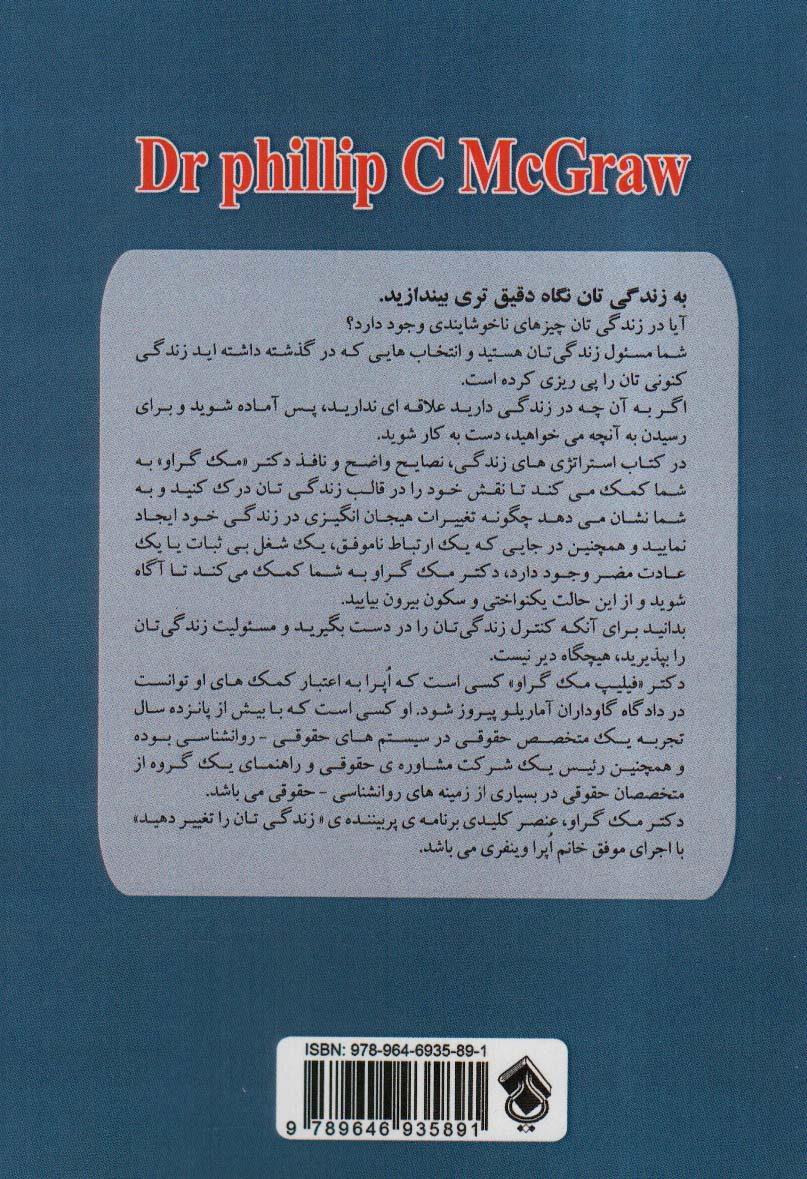 Dr phillip C McGraw
به زندگی تان نگاه دقیق تری بیندازید.
آیا در زندگی تان چیزهای ناخوشایندی وجود دارد؟
شما مسئول زندگی‌تان هستید و انتخاب هایی که در گذشته داشته اید زندگی
کنونی تان را پی ریزی کرده است.
اگر به آن چه در زندگی دارید علاقه ای ندارید، پس آماده شوید و برای
رسیدن به آنچه می خواهید، دست به کار شوید.
در کتاب استراتژی های زندگی، نصایح واضح و نافذ دکتر «مک گراو» به
شما کمک می کند تا نقش خود را در قالب زندگی تان درک کنید و به
شما نشان می دهد چگونه تغییرات هیجان انگیزی در زندگی خود ایجاد
نمایید و همچنین در جایی که یک ارتباط ناموفق، یک شغل بی ثبات یا یک
عادت مضر وجود دارد، دکتر مک گراو به شما کمک می‌کند تا آگاه
شوید و از این حالت یکنواختی و سکون بیرون بیایید.
بدانید برای آنکه کنترل زندگی‌تان را در دست بگیرید و مسئولیت زندگی‌تان
را بپذیرید، هیچگاه دیر نیست.
دکتر «فیلیپ مک گراو» کسی است که اُپرا به اعتبار کمک های او توانست
در دادگاه گاوداران آماریلو پیروز شود. او کسی است که با بیش از پانزده سال
تجربه یک متخصص حقوقی در سیستم های حقوقی - روانشناسی بوده
و همچنین رئیس یک شرکت مشاوره ی حقوقی و راهنمای یک گروه از
متخصصان حقوقی در بسیاری از زمینه های روانشناسی - حقوقی می باشد.
دکتر مک گراو، عنصر کلیدی برنامه ی پربیننده ی «زندگی تان را تغییر دهید»
با اجرای موفق خانم اُپرا وینفری می باشد.
ISBN: 978-964-6935-89-1
9 789646 935891